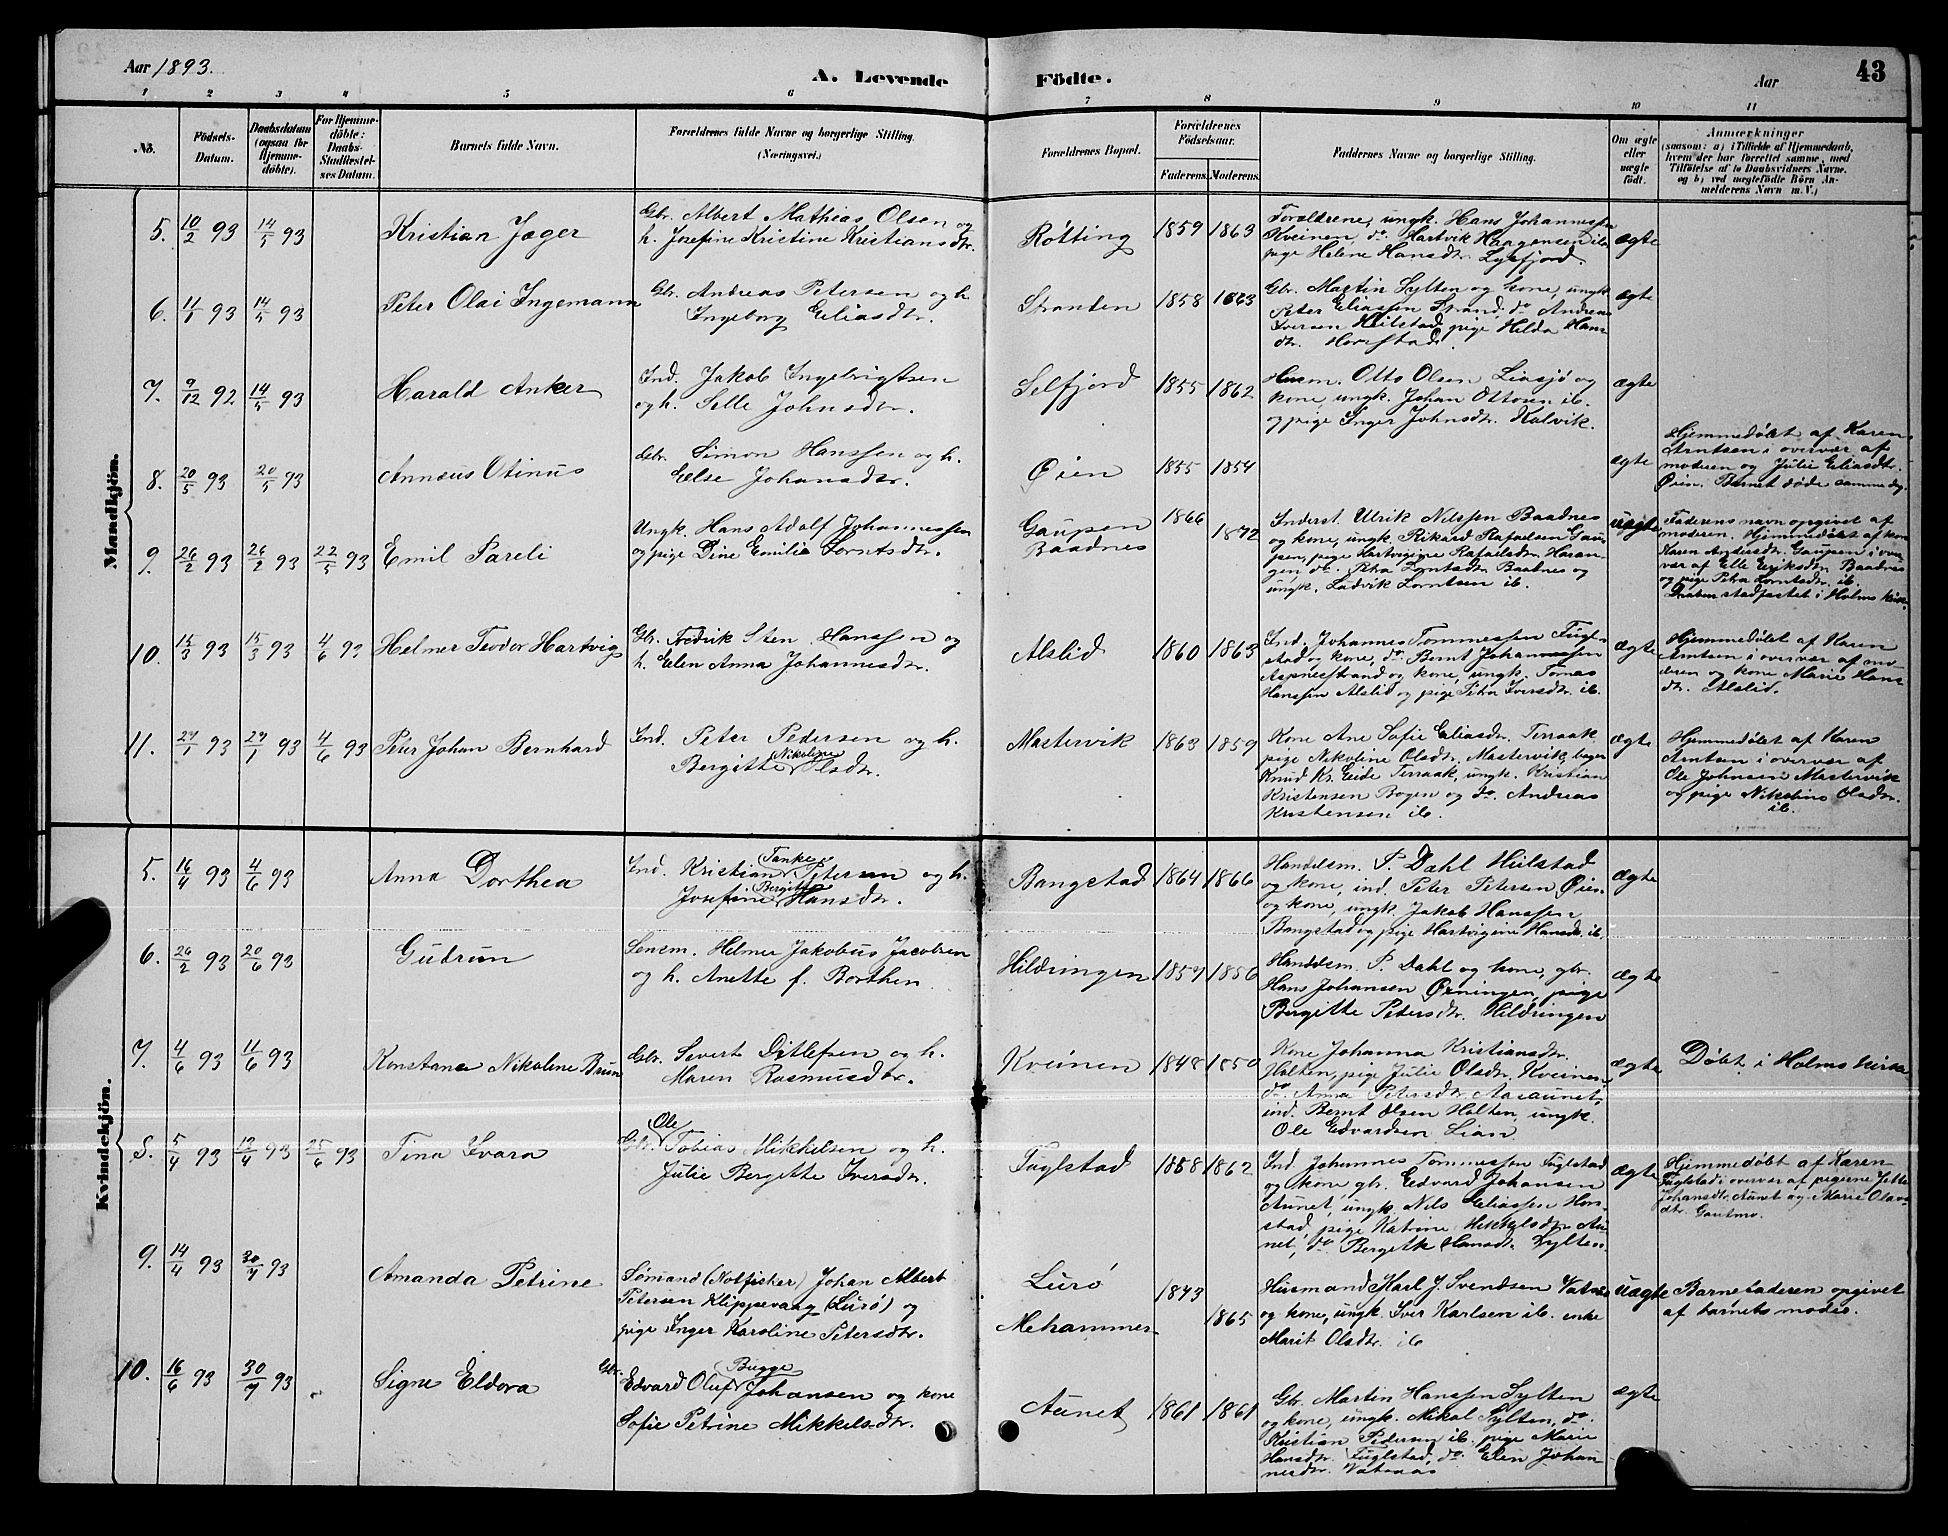 Aar 1893.
A. Levende Födte.
Aar
43
1 2 3 4 5 6 7 8 9 10 11
No.
Födsels-Datum.
Daabsdatum (ogsaa for Hjemme-döbte).
For Hjemme-döbte: Daabs-Stadfæstel-ses Datum.
Barnets fulde Navn.
Forældrenes fulde Navne og borgerlige Stilling. (Næringsvei.)
Forældrenes Bopæl.
Forældrenes Födselsaar.
Faderens. Moderens.
Faddernes Navne og borgerlige Stilling.
Om ægte eller uægte födt.
Anmærkninger
(saasom: a) i Tilfælde af Hjemmedaab,
hvem der har forrettet samme, med
Tilföielse af to Daabsvidners Navne,
og b) ved uægtefödte Börn An-
melderens Navn m. V.)
Mandkjön.
5. 10/2 93 14/5 93 Kristian Jæger
Gbr. Albert Mathias Olsen og
h. Josefine Kristine Kristiansdtr.
Røtting 1859 1863
Forældrene, ungk. Hans Johannessen
Kveinen, do. Hartvik Haagensen ib.
pige Helene Hansdtr. Lysfjord.
ægte
6. 11/1 93 14/5 93 Peter Olai Ingemann
Gbr. Andreas Petersen og h.
Ingeborg Eliasdtr.
Stranden 1858 1863
Gbr. Martin Sylten og kone, ungk.
Peter Eliassen Strand, do. Andreas
Iversen Heilstad, pige Hilda Hans
dtr. Horstad.
ægte
7. 9/12 92 14/5 93 Harald Anker
Ind. Jakob Ingebrigtsen
og h. Selle Johnsdtr.
Selfjord 1855 1862
Husm. Otto Olsen Liasjø og
kone, ungk. Johan Ottosen ib.
og pige Inger Johnsdtr. Kalvik.
ægte
8. 20/5 93 20/5 93 Annæus Otinus
Gbr. Simon Hanssen og h.
Else Johansdtr.
Øien 1855 1854
ægte
Hjemmedøbt af Karen
Arntsen i overvær af
moderen og Julie Eliasdtr.
Øien. Barnet døde samme dag.
9. 26/2 93 26/2 93 22/5 93 Emil Pareli
Ungk. Hans Adolf Johannessen
og pige Dine Emilie Lorntsdtr.
Gaupen
Baadnes
1866 1872
Inderst. Ulrik Nilssen Baadnes
og kone, ungk. Rikard Rafaelsen Gau-
pen, pige Hartvigine Rafaelsdtr. Haran-
gen do. Petra Lorntsdtr. Baadnes og
ungk. Ludvik Lorntsen ib.
uægte
Faderens navn opgivet af
moderen. Hjemmedøbt af kone
Karen Gaupen i over-
vær af Elle Eriksdtr. Baadnes
og pige Petra Lorntsdtr. ib.
Daaben stadfæstet i Holms kirke.
10. 15/3 93 15/3 93 4/6 93 Helmer Teodor Hartvig
Gbr. Fredrik Sten Hanssen og
h. Elen Anna Johannesdtr.
Alslid 1860 1863
Ind. Johannes Tommessen Fugl-
stad og kone, do. Bernt Johannessen
Aspnesstrand og kone, ungk. Tomas
Hanssen Alslid og pige Petra Iversdtr. ib.
ægte
Hjemmedøbt af Karen
Arntsen i overvær af mo-
deren og kone Marie Hans
dtr. Alslid.
11. 29/1 93 29/1 93 4/6 93 Peter Johan Bernhard
Ind. Peter Pedersen og h.
Bergitte Nikoline Olsdtr.
Mastervik 1863 1859
Kone Ane Sofie Eliasdtr. Terraak
pige Nikoline Olsdtr. Mastervik, bager
Knud Kr. Eide Terraak, ungk. Kristian
Kristensen Bogen og do. Andreas
Kristensen ib.
ægte
Hjemmedøbt af Karen
Arntsen i overvær af
Ole Johnsen Mastervik
og pige Nikoline Olsdtr.
ib.
Kvindekjön.
5. 16/4 93 4/6 93 Anna Dorthea
Ind. Kristian Tanke Petersen og h.
Josefine Bergitte Hansdtr.
Bangstad 1864 1866
Handelsm. P. Dahl Heilstad
og kone, ind. Peter Petersen Øien
og kone, ungk. Jakob Hanssen
Bangstad og pige Hartvigine Hansdtr. ib.
ægte
6. 26/2 93 20/6 93 Gudrun
Lensm. Helmer Jakobus Jacobsen
og h. Anette f. Borthen
Hildringen 1857 1856
Handelsm. P. Dahl og kone, gbr.
Hans Johansen Ørningen, pige
Bergitte Petersdtr. Hildringen
ægte
7. 4/6 93 11/6 93 Konstance Nikoline Brun
Gbr. Sivert Ditlefsen og h.
Maren Rasmusdtr.
Kveinen 1848 1850
Kone Johanna Kristiansdtr.
Holten, pige Julie Olsdtr. Kveinen
do. Anna Petersdtr. Aasaunet,
ind. Bernt Olsen Holten, ungk.
Ole Edvardsen Lian
ægte
Døbt i Holms kirke
8. 5/4 93 13/4 93 25/6 93 Tina Ivara
Gbr. Ole Tobias Mikkelsen og h.
Julie Bergitte Iversdtr.
Fuglstad 1858 1862
Ind. Johannes Tommessen Fuglstad
og kone gbr. Edvard Johansen
Aunet, ungk. Nils Eliassen Hor-
stad, pige Katrine Mikkelsdtr. Au-
net, do. Bergitte Hansdtr. Sylten.
ægte
Hjemmedøbt af Karen
Fuglstad i overvær af pigerne Jette
Johansdtr. Aunet og Marie Olava
dtr. Gautmo.
9. 14/4 93 30/7 93 Amanda Petrine
Sømand (Notfisker) Johan Albert
Petersen Klippevaag (Lurø) og
pige Inger Karoline Petersdtr.
Lurø
Mehammer
1843 1865
Husmand Karl J. Svendsen Vatnaas
og kone, ungk. Iver Karlsen ib. enke
Marit Olsdtr. ib
uægte
Barnefaderen opgivet
af barnets moder.
10. 16/6 93 30/7 93 Signe Eldora
Gbr. Edvard Oluf Bugge Johansen og kone
Sofie Petrine Mikkelsdtr.
Aunet 1861 1861
Gbr. Martin Hanssen Sylten
og kone, ungk. Mikal Sylten, do.
Kristian Pedersen ib. pige Marie
Hansdtr. Fuglstad, do. Elen Johan
nesdtr. Vatnaas
ægte